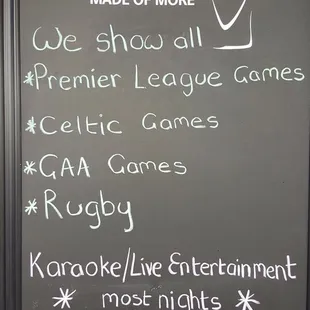 MADE OF MORE
We show all
*Premier League Games
*Celtic Games
*GAA Games
*Rugby
Karaoke/Live Entertainment
* most nights *